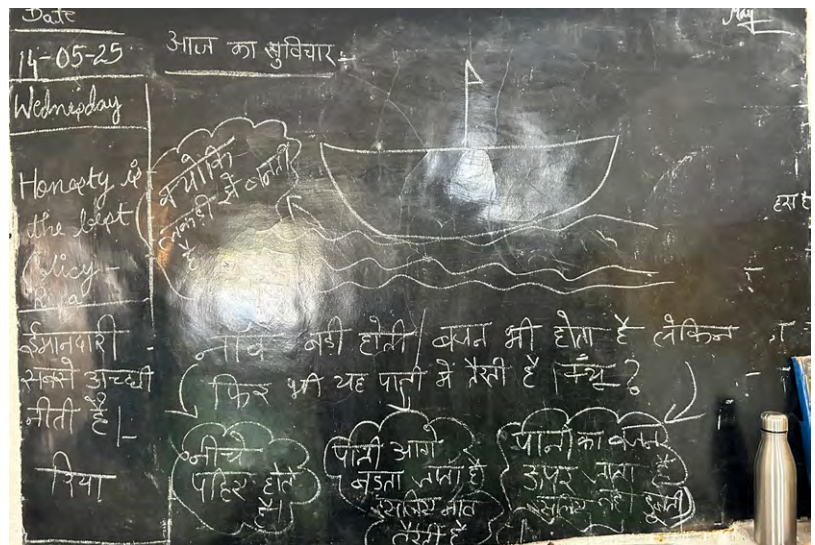 Date
14-05-25
Wednesday
Honesty is
the best
olicy-
ईमानदारी
सबसे अच्छी
नीती है।
रिया
May
आज का सुविचार :-
क्योकि
लकडी से बनती
है
नाव बडी होती वजन भी होता है लेकिन
फिर भी यह पानी मे तैरती है। क्यू ?
नीचे
पहिए होते
है।
पानी आगे
बडता जाता है
इसलिए नाव
तैरती है
पानी का वजन
ऊपर जाता है
इसलिए नही डूबती